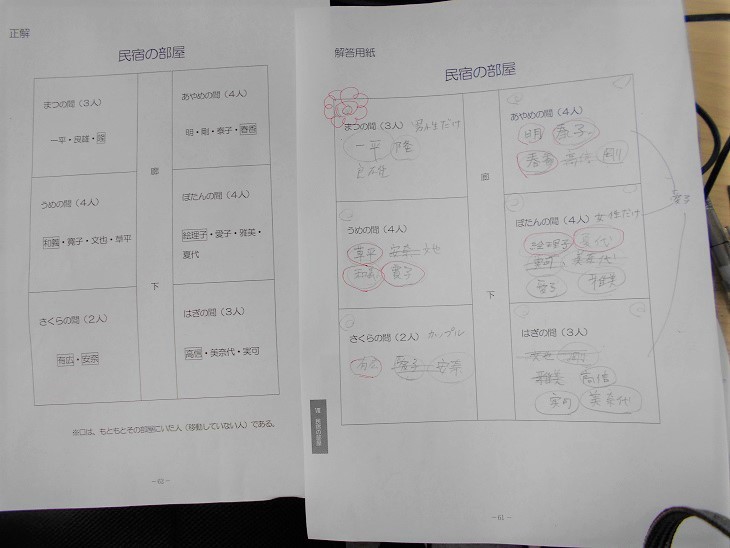 正解
民宿の部屋
まつの間（3人）
一平・良雄・隆
あやめの間（4人）
明・剛・泰子・春香
うめの間（4人）
和義・寛子・文也・草平
廊
下
ぼたんの間（4人）
絵理子・愛子・雅美・
夏代
さくらの間（2人）
有広・安奈
はぎの間（3人）
高信・英奈代・実可
※□は、もともとその部屋にいた人（移動していない人）である。
－62－
解答用紙
民宿の部屋
まつの間（3人） 男性だけ
一平 隆
良雄
あやめの間（4人）
明 泰子
春香 高信 剛
うめの間（4人）
草平 安奈 文也
和義 寛子
廊
下
ぼたんの間（4人） 女性だけ
絵理子 夏代
実可 英奈代
愛子 雅美
愛子
さくらの間（2人） カップル
有広 愛子 安奈
はぎの間（3人）
文也 剛
雅美 高信
実可 美奈代
Ⅶ 民宿の部屋
－61－